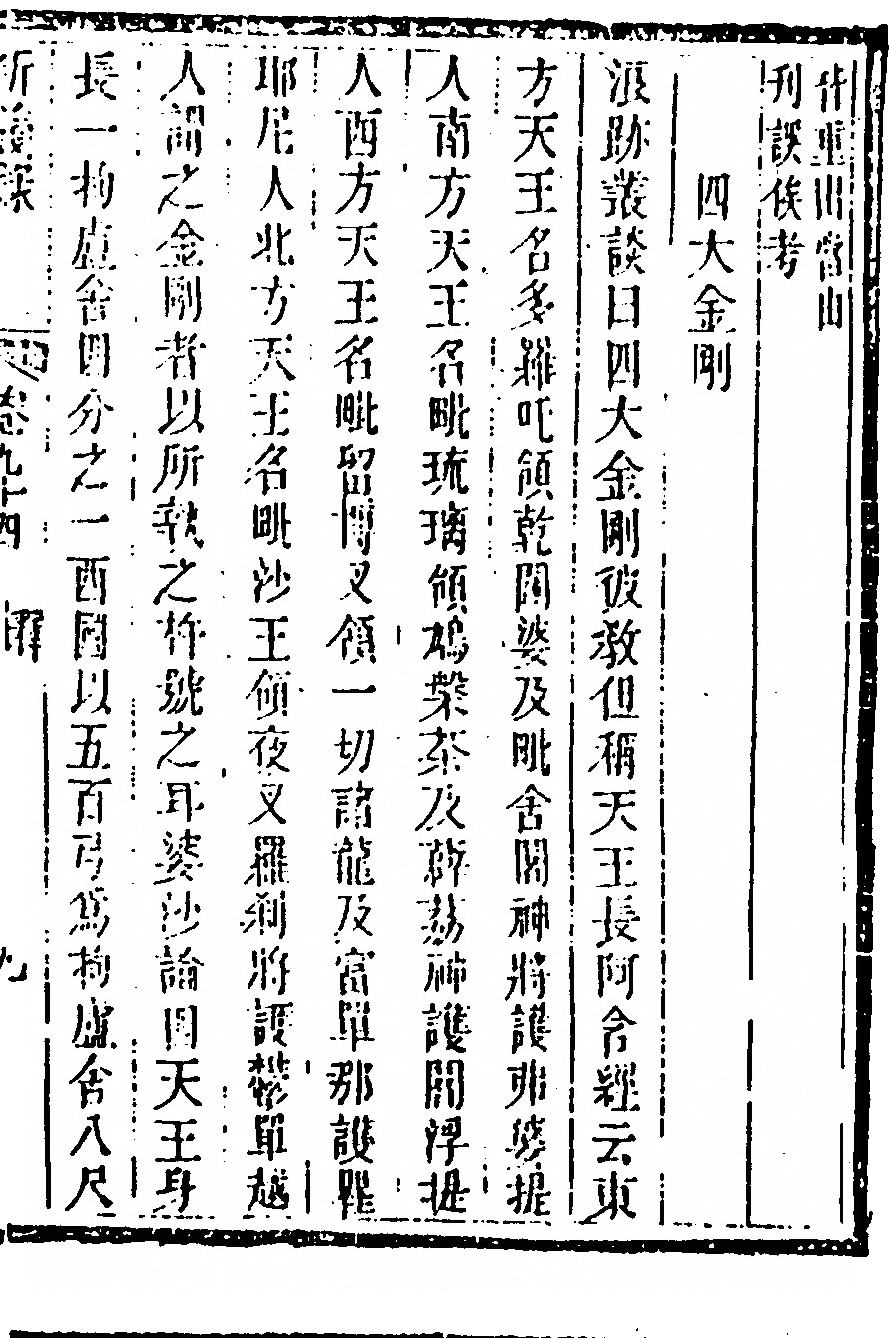 什重出當由
刊誤俟考
四大金剛
浪跡叢談曰四大金剛彼教但稱天王長阿含經云東
方天王名多羅吒領乾闥婆及毗舍闍神將護弗婆提
人南方天王名毗琉璃領鳩槃茶及薜荔神護閻浮提
人西方天王名毗留博叉領一切諸龍及富單那護瞿
耶尼人北方天王名毗沙王領夜叉羅剎將護鬱單越
人謂之金剛者以所執之杵號之耳婆沙論曰天王身
長一拘盧舍四分之一西國以五百弓為拘盧舍八尺
卷九十四
九